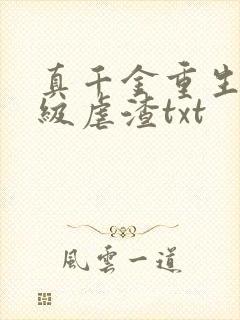 真千金重生
级虐渣txt
風雲一道